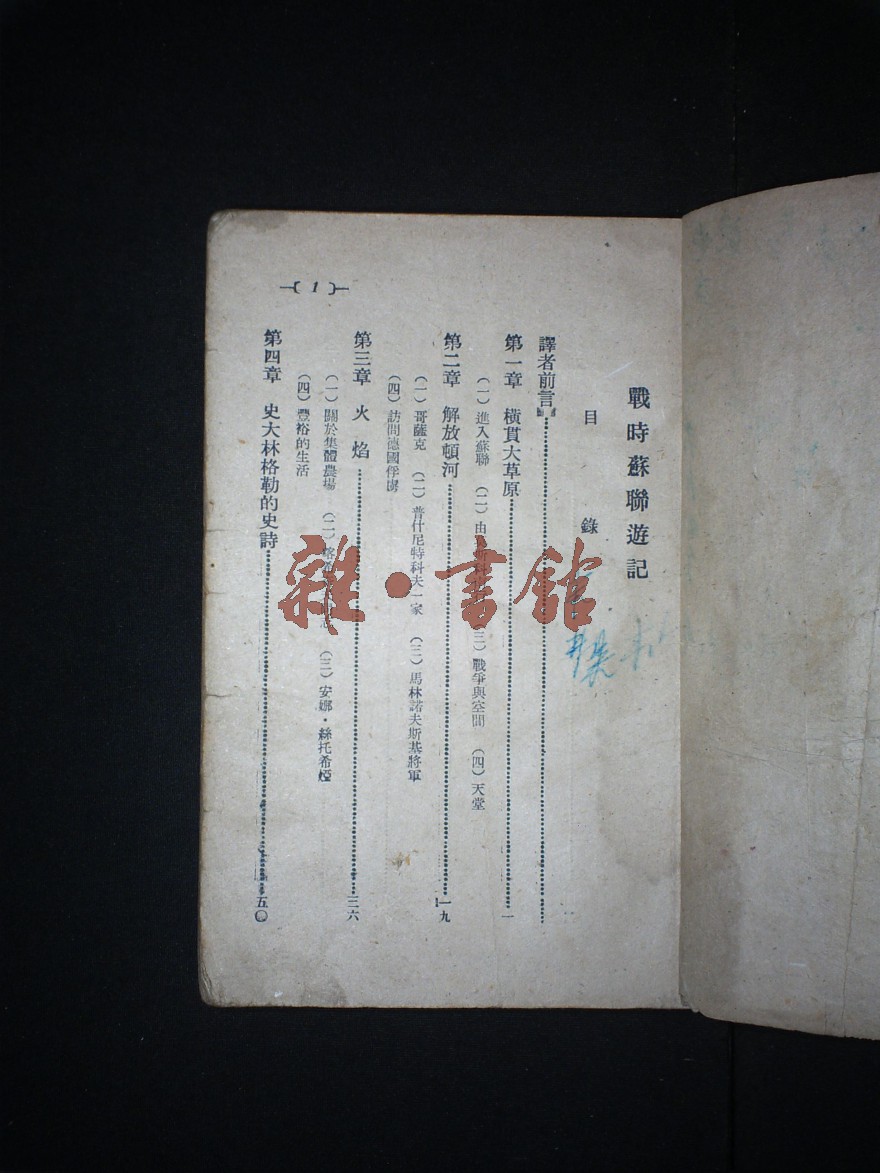 戰時蘇聯遊記
目 錄
譯者前言
第一章 橫貫大草原 一
(一)進入蘇聯 (二)由 (三)戰爭與空間 (四)天堂
第二章 解放頓河 一九
(一)哥薩克 (二)普什尼特科夫一家 (三)馬林諾夫斯基將軍
(四)訪問德國俘虜
第三章 火焰 三六
(一)關於集體農場 (二) (三)安娜・絲托希婭
(四)豐裕的生活
第四章 史大林格勒的史詩 五〇
1
雜・書館